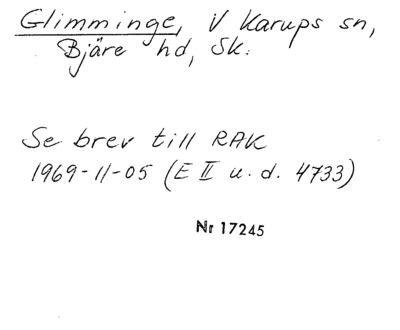 Glimminge, V Karups sn,
Bjäre hd, Sk.
Se brev till RAK
1969-11-05 (E II u. d. 4733)
Nr 17245